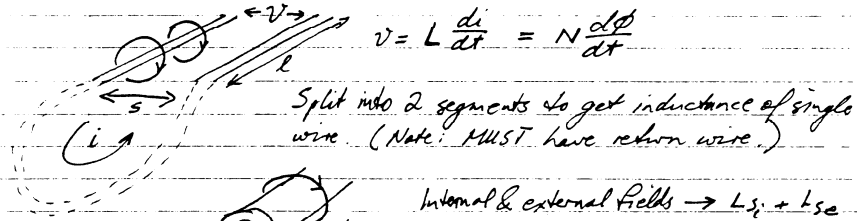 V
v = L di/dt = N dφ/dt
l
s
Split into 2 segments to get inductance of single
i
wire. (Note: MUST have return wire.)
Internal & external fields → Lsi + Lse